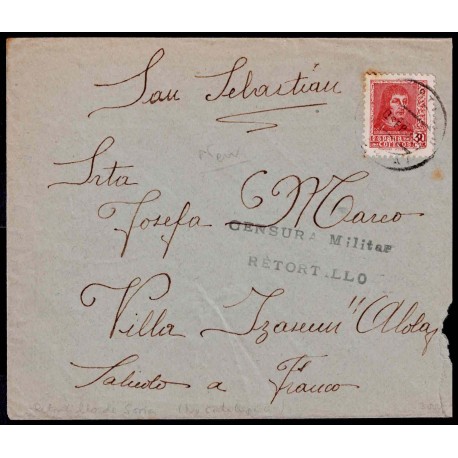 San Sebastián
ESPAÑA
CORREOS
30
Srta
Josefa Marco
CENSURA Militar
RETORT LLO
Villa "Alola"
Saludo a Franco